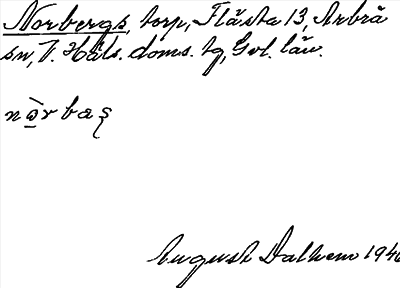 Norbergs, torp, Flästa 13, Arbrå
sn, V. Häls. doms. tg, Gvl. län.
nɷ̀rbaʂ
August Dalhem 1940